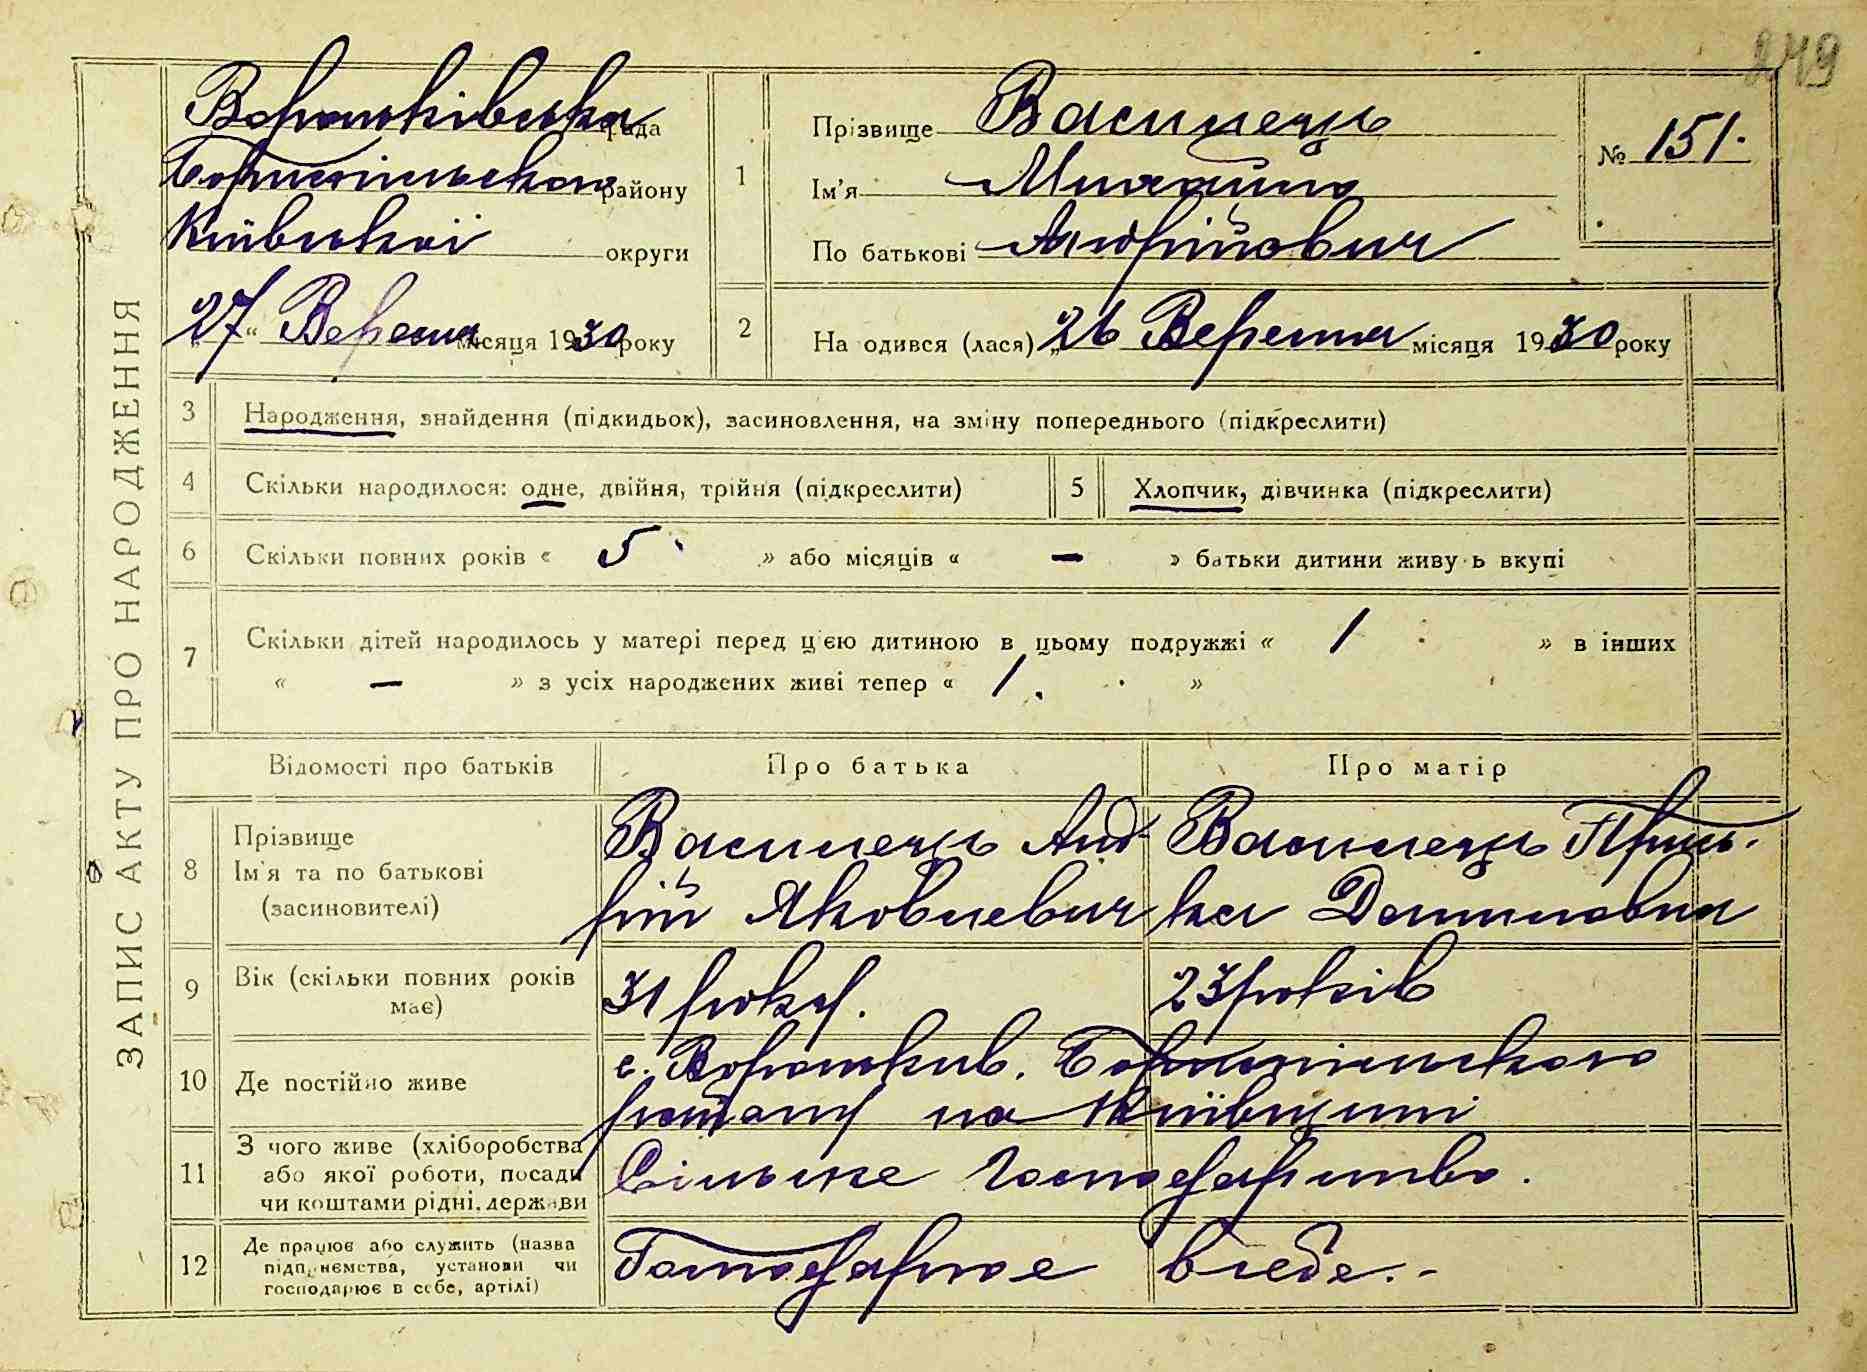 249
ЗАПИС АКТУ ПРО НАРОДЖЕННЯ
Вороньківська рада
Бориспільського району
Київської округи
27 " Вересня місяця 1930 року
1
Прізвище Василець
Ім'я Михайло
По батькові Андрійович
№ 151.
2
На одився (лася) „ 26 Вересня місяця 1930 року
3 Народження, знайдення (підкидьок), засиновлення, на зміну попереднього (підкреслити)
4 Скільки народилося: одне, двійня, трійня (підкреслити)
5 Хлопчик, дівчинка (підкреслити)
6 Скільки повних років « 5 » або місяців « — » батьки дитини живу ь вкупі
7 Скільки дітей народилось у матері перед цією дитиною в цьому подружжі « 1 » в інших
« — » з усіх народжених живі тепер « 1. »
Відомості про батьків Про батька Про матір
8 Прізвище
Ім'я та по батькові
(засиновителі)
Василець Анд-
рій Яковлевич
Василець Прись-
ка Даниловна
9 Вік (скільки повних років
має)
31 року.
23 років
10 Де постійно живе
с. Вороньків. Бориспільского
району на Київщині
11 З чого живе (хліборобства
або якої роботи, посади
чи коштами рідні, держави
Сільське Господарство.
12 Де працює або служить (назва
підприємства, установи чи
господарює в себе, артілі)
Господарює в себе.-